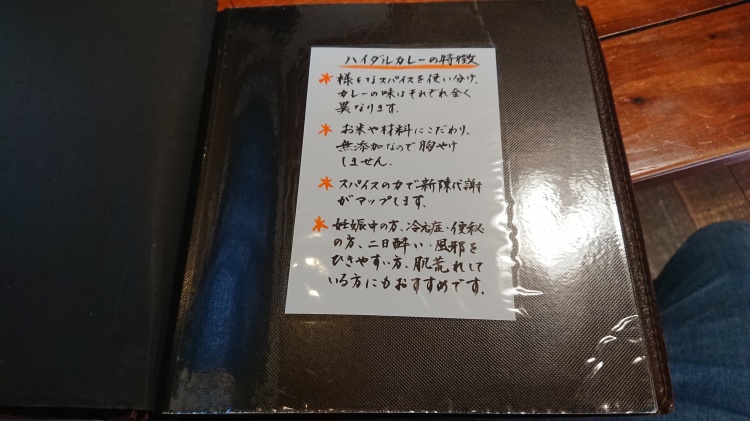 ハイダルカレーの特徴
* 様々なスパイスを使い分け、
カレーの味はそれぞれ全く
異なります。
* お米や材料にこだわり、
無添加なので胸やけ
しません。
* スパイスの力で新陳代謝
がマップします。
* 妊娠中の方、冷え症・便秘
の方、二日酔い・風邪を
ひきやすい方、肌荒れして
いる方にもおすすめです。